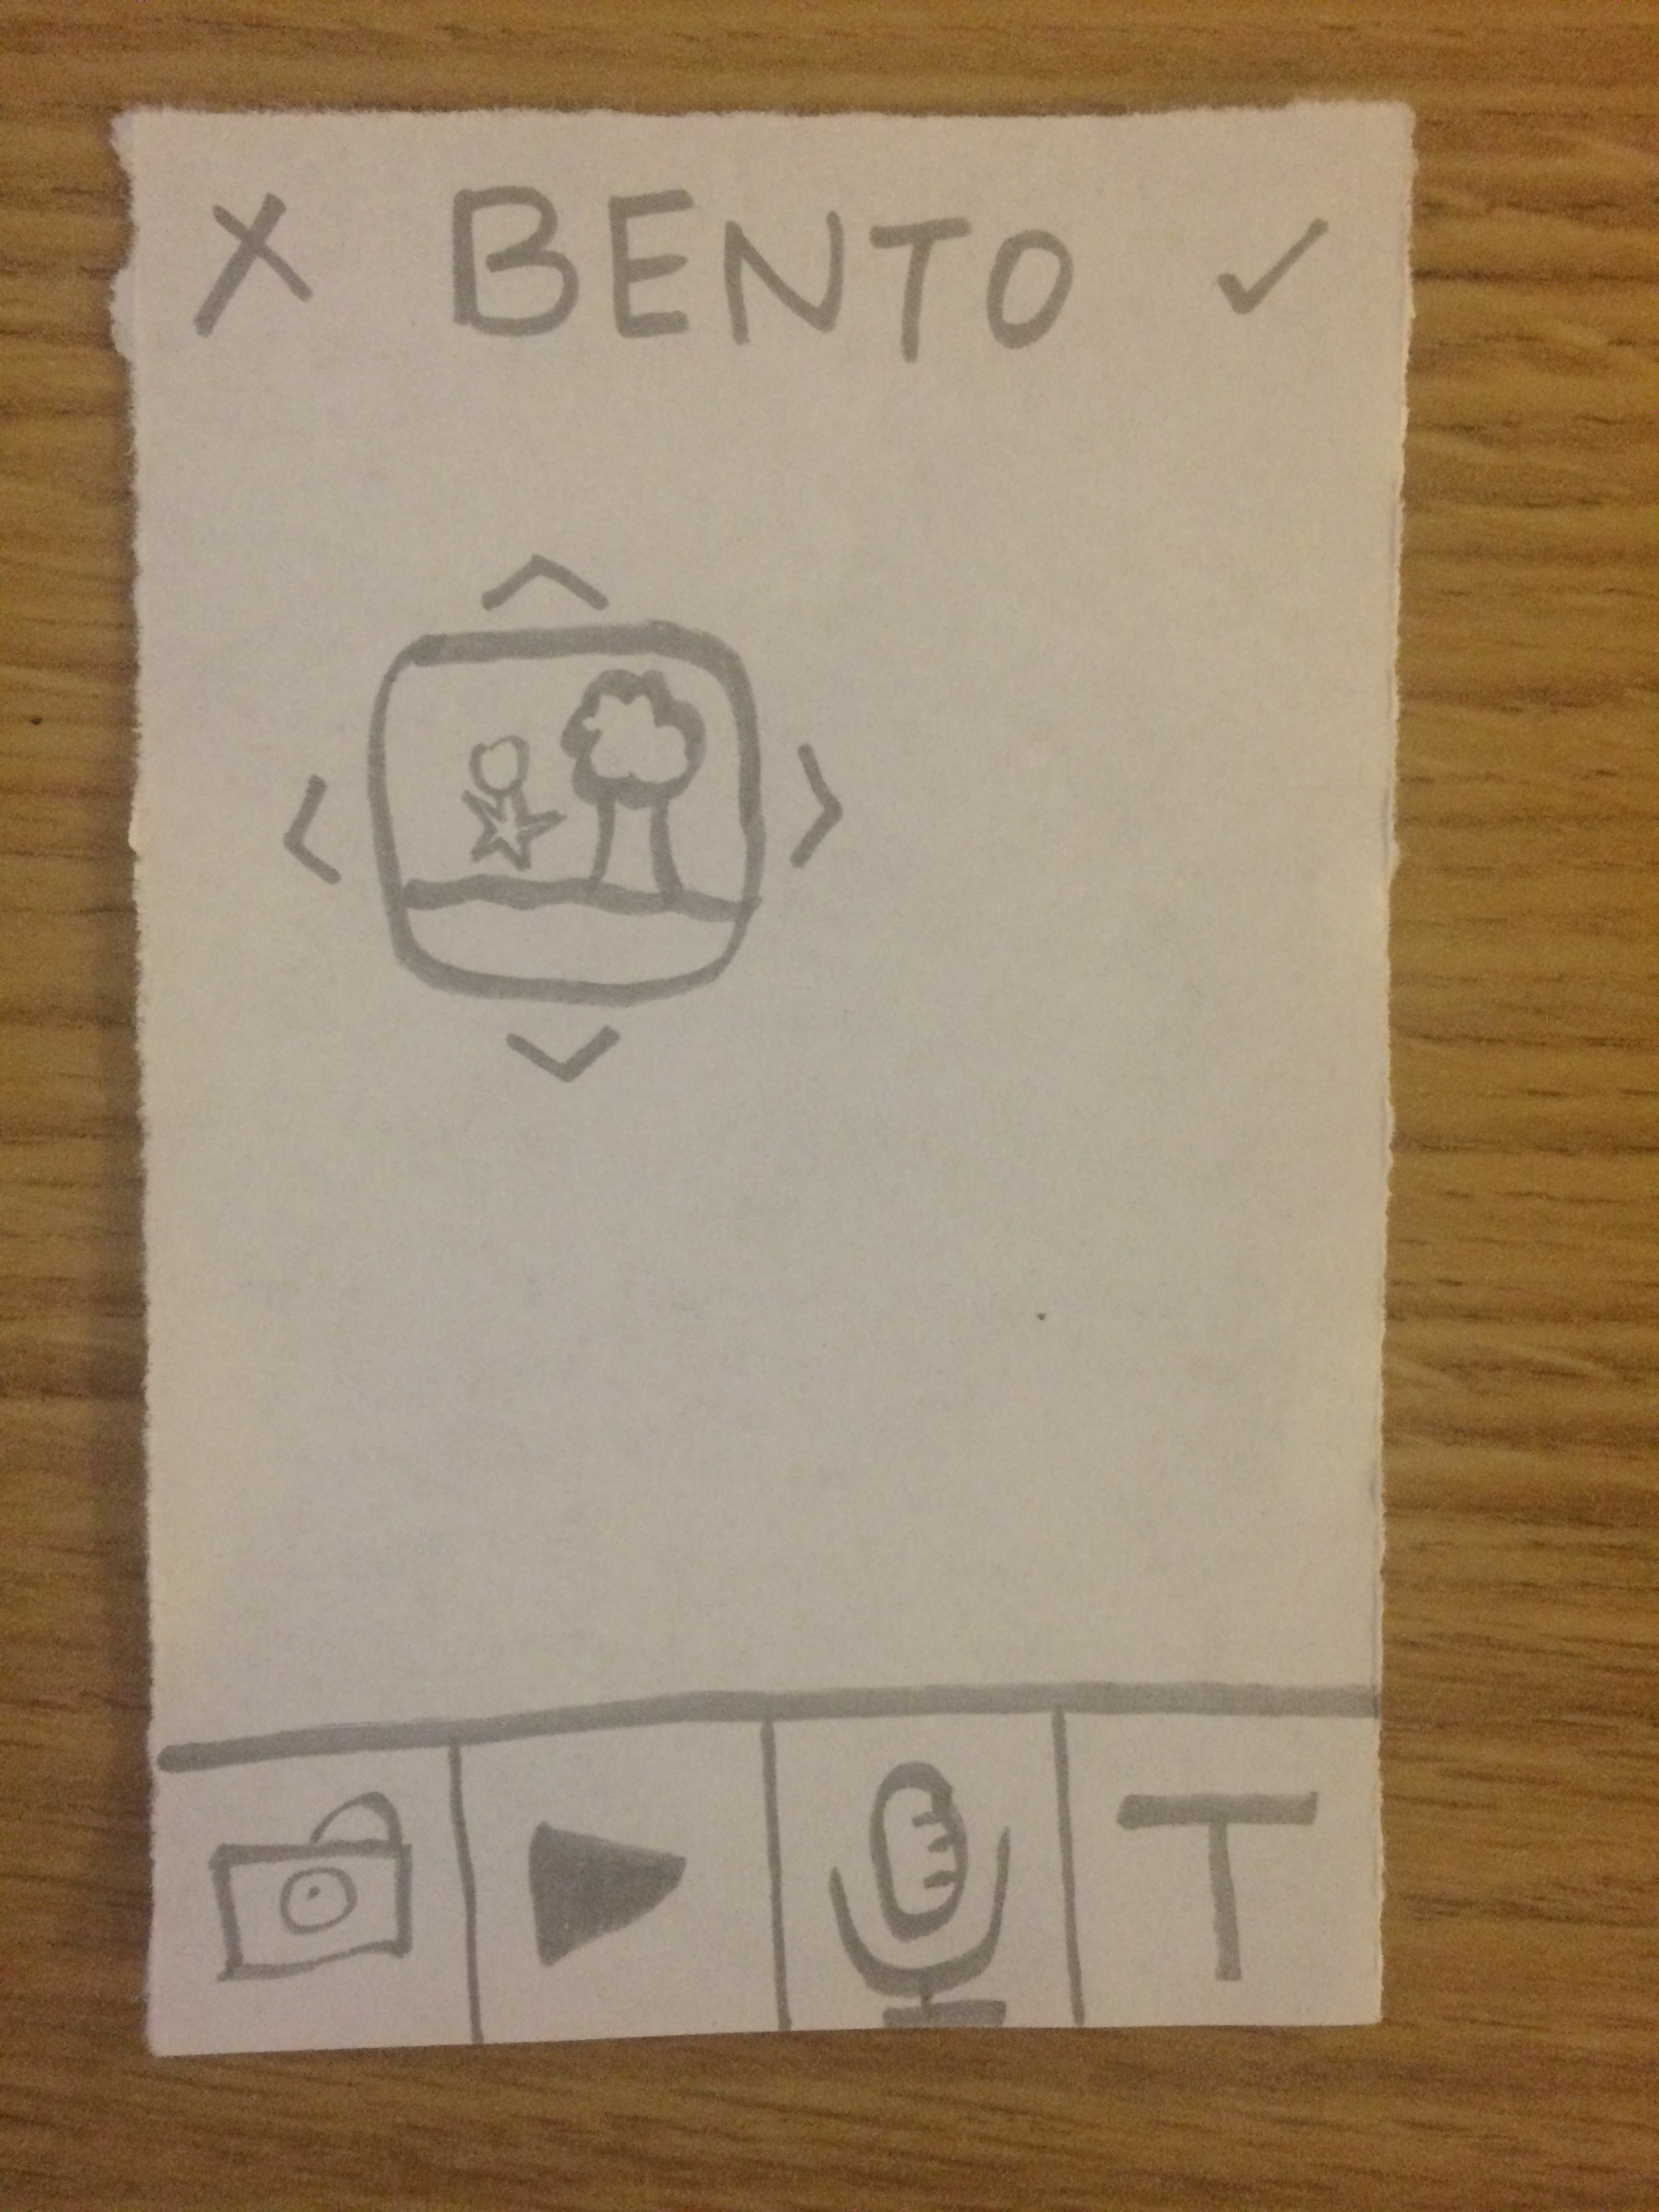 X BENTO ✓
T